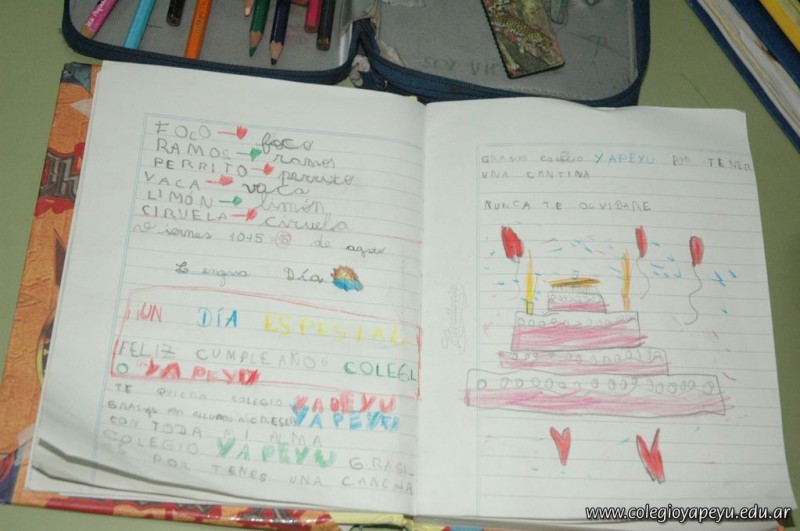 FOCO → foco
RAMOS → ramos
PERRITO → perrito
VACA → vaca
LIMÓN → limón
CIRUELA → ciruela
Viernes 10 15 de agos
Lengua Día
UN DÍA ESPESIAL
FELIZ CUMPLEAÑOS COLEGI
O YAPEYU
TE QUIERO COLEGIO YAPEYU
YAPEYU
CON TODA MI ALMA
COLEGIO YAPEYU GRASI
POR TENES UNA CANCHA
GRASIAS COLEGIO YAPEYU POR TENER
UNA CANTINA
NUNCA TE OLVIDARE
www.colegioyapeyu.edu.ar